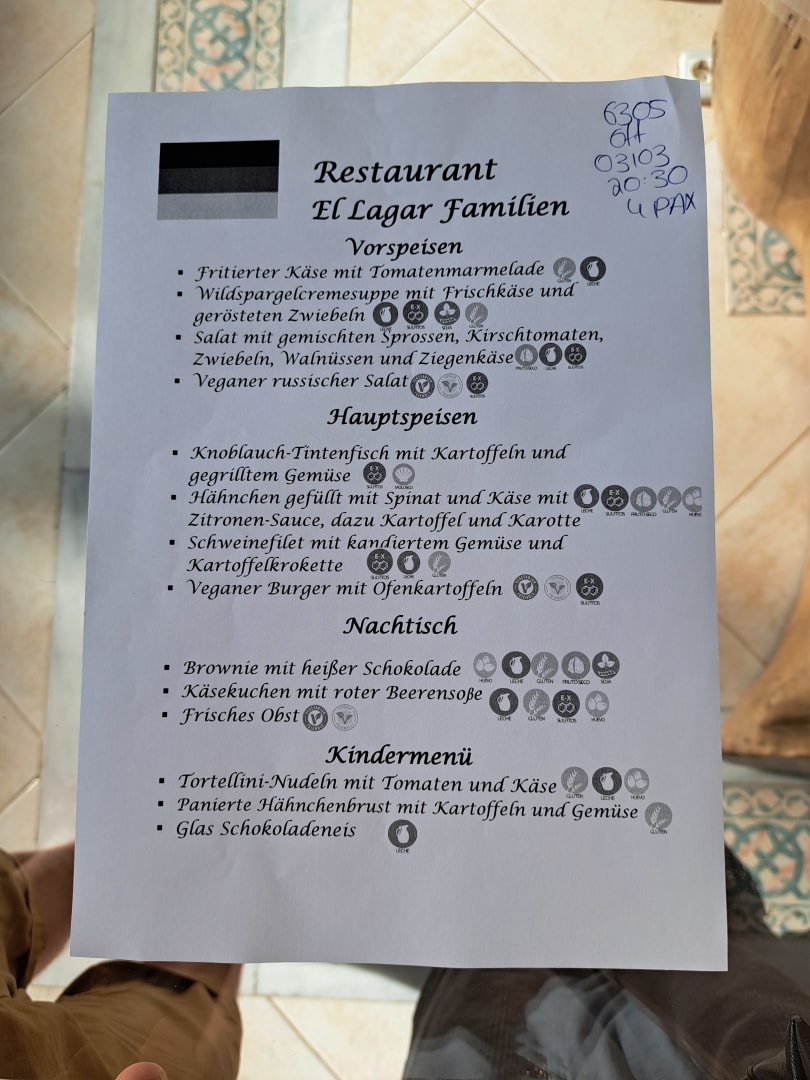 6305
off
03103
20:30
4 PAX
Restaurant
El Lagar Familien
Vorspeisen
▪ Fritierter Käse mit Tomatenmarmelade GLUTEN LECHE
▪ Wildspargelcremesuppe mit Frischkäse und
gerösteten Zwiebeln LECHE E-X SULFITOS SOJA GLUTEN
▪ Salat mit gemischten Sprossen, Kirschtomaten,
Zwiebeln, Walnüssen und Ziegenkäse FRUTO SECO LECHE E-X SULFITOS
▪ Veganer russischer Salat E-X SULFITOS
Hauptspeisen
▪ Knoblauch-Tintenfisch mit Kartoffeln und
gegrilltem Gemüse E-X SULFITOS MOLUSCO
▪ Hähnchen gefüllt mit Spinat und Käse mit LECHE E-X SULFITOS FRUTO SECO GLUTEN HUEVO
Zitronen-Sauce, dazu Kartoffel und Karotte
▪ Schweinefilet mit kandiertem Gemüse und
Kartoffelkrokette E-X SULFITOS LECHE GLUTEN
▪ Veganer Burger mit Ofenkartoffeln E-X SULFITOS
Nachtisch
▪ Brownie mit heißer Schokolade HUEVO LECHE GLUTEN FRUTO SECO SOJA
▪ Käsekuchen mit roter Beerensoße LECHE GLUTEN E-X SULFITOS HUEVO
▪ Frisches Obst
Kindermenü
▪ Tortellini-Nudeln mit Tomaten und Käse GLUTEN LECHE HUEVO
▪ Panierte Hähnchenbrust mit Kartoffeln und Gemüse GLUTEN
▪ Glas Schokoladeneis LECHE